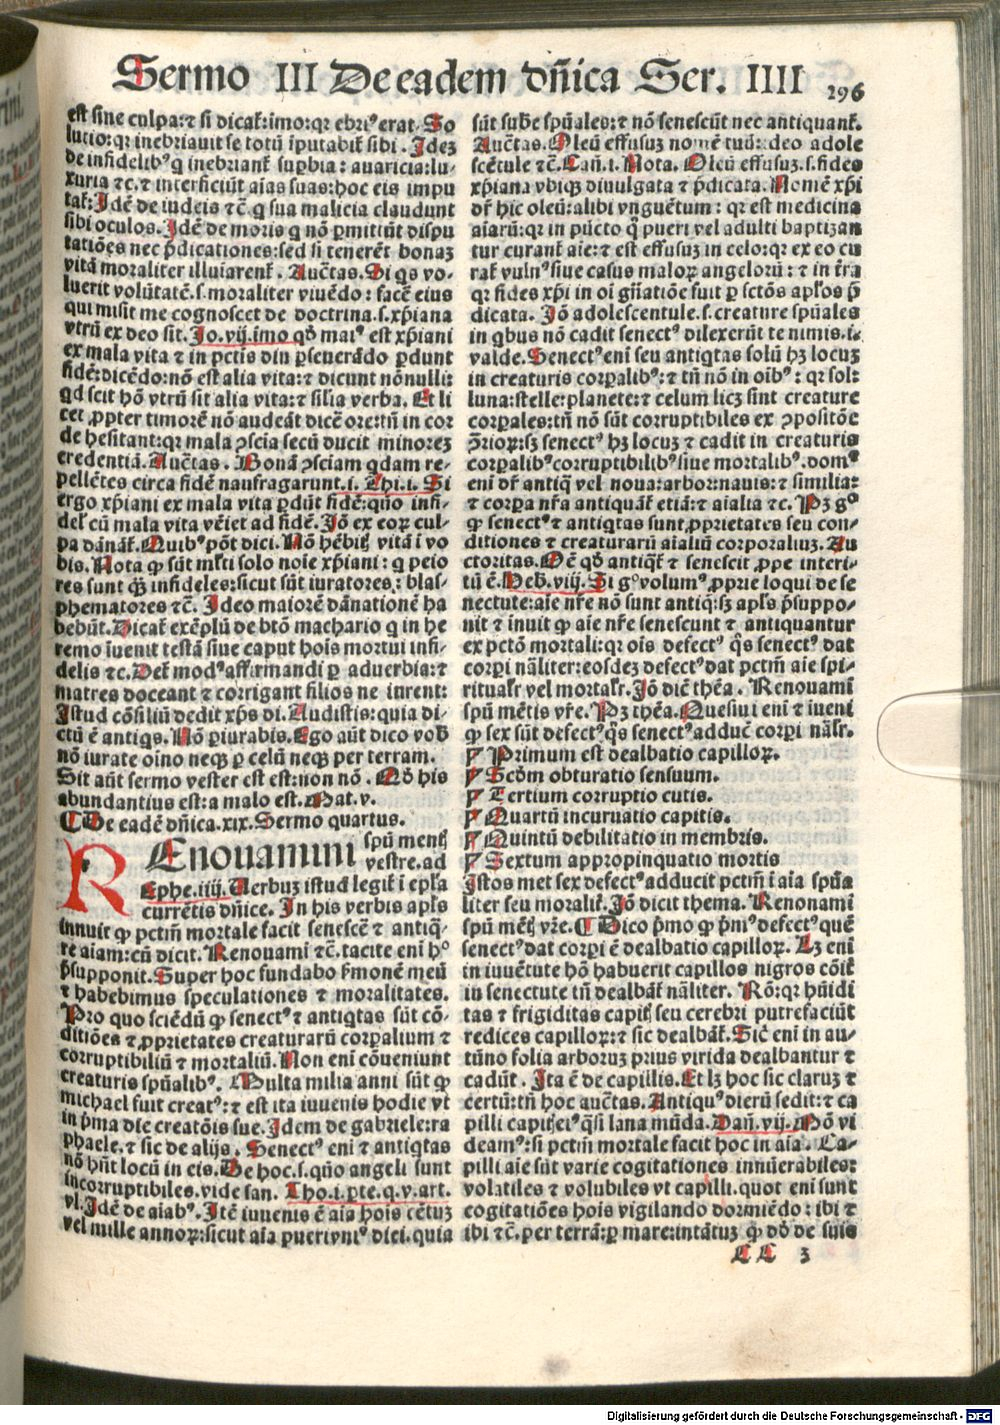 Sermo III De eadem dñica Ser. IIII
296
est sine culpa: ⁊ si dicat̃: imo: qr ebriꝰ erat. So
lutio: qr inebriauit se totũ ĩputabit̃ sibi. Idez
de infidelibꝰ q inebriant̃ supbia: auaricia: lu-
xuria ⁊c. ⁊ interficiũt aĩas suas: hoc eis impu
tat̃: Idẽ de iudeis ⁊c̃ q sua malicia claudunt
sibi oculos. Idẽ de moris q nõ pmittũt dispu
tatiões nec p̃dicationes: sed si tenerẽt bonaz
vitã moraliter illuiarent̃. Auc̃tas. Si qs vo-
luerit volũtatẽ .s. moraliter viuẽdo: facẽ eius
qui misit me cognoscet de doctrina .s. xp̃iana
vtrũ ex deo sit. Jo. vij. imo qd̃ maiꝰ est xp̃iani
ex mala vita ⁊ in pctĩs diu pseuerãdo pdunt
fidẽ: dicẽdo: nõ est alia vita: ⁊ dicunt nõnulli:
qd scit hõ vtrũ sit alia vita: ⁊ silia verba. Et li
cet ,ppter timorẽ nõ audeãt dicẽ ore: tñ in cor
de hesitant: qr mala ɔscia secũ ducit minorez
credentiã. Auc̃tas. Bonã ɔsciam qdam re-
pellẽtes circa fidẽ naufragarunt. i. Thi. i. Si
ergo xp̃iani ex mala vita pdũt fidẽ: qño infi-
del̃ cũ mala vita vẽiet ad fidẽ. Jõ ex coꝝ cul-
pa dãnãt̃. Quibꝰ põt dici. Nõ hẽbitꝭ vitã ĩ vo
bis. Nota ꝙ sũt ml̃ti solo noĩe xp̃iani: q peio
res sunt qꝫ infideles: sicut sũt iuratores: blas-
phematores ⁊c̃. Ideo maiorẽ dãnationẽ ha
bebũt. Dicat̃ exẽplũ de btõ machario q in he
remo ĩuenit testã siue caput hoĩs mortui infi-
delis ⁊c. Det̃ modꝰ affirmandi p aduerbia: ⁊
matres doceant ⁊ corrigant filios ne iurent:
Istud cõsiliũ dedit xp̃s di. Audistis: quia di-
ctũ ẽ antiqs. Nõ piurabis. Ego aũt dico vob̃
nõ iurate oĩno neqꝫ p celũ neqꝫ per terram.
Sit aũt sermo vester est est: non nõ. Qd̃ his
abundantius est: a malo est. Mat. v.
¶ De eadẽ dñica. xix. Sermo quartus.
REnouamini spũ mentꝭ
vestre. ad
Ephe. iiij. Uerbuz istud legit̃ ĩ epl̃a
currẽtis dñice. In his verbis apl̃s
innuit ꝙ pctm̃ mortale facit senescẽ ⁊ antiq̃-
re aiam: cũ dicit. Renouamĩ ⁊c̃. tacite enĩ hº
p̃supponit. Super hoc fundabo ẜmonẽ meũ
⁊ habebimus speculationes ⁊ moralitates.
Pro quo sciẽdũ ꝙ senectꝰ ⁊ antiqtas sũt cõ-
ditiões ⁊ ,pprietates creaturarũ corpalium ⁊
corruptibiliũ ⁊ mortaliũ. Non enĩ cõueniunt
creaturis spũalibꝰ. Multa milia anni sũt ꝙ
michael fuit creatꝰ: ⁊ est ita iuuenis hodie vt
in p̃ma die creatõis sue. Idem de gabriele: ra
phaele. ⁊ sic de alijs. Senectꝰ eni ⁊ antiqtas
nõ hñt locũ in eis. De hoc .s. qño angeli sunt
incorruptibiles. vide san. Tho. i. pte. q. v. art.
vl. Idẽ de aiabꝰ. Itẽ iuuenis ẽ aĩa hoĩs cẽtuz
vel mille annoꝝ: sicut aĩa pueri vniꝰ diei. quia
sũt sub̃e spũales: ⁊ nõ senescũt nec antiquant̃.
Auc̃tas. Oleũ effusuz nomẽ tuũ: ideo adole
scẽtule ⁊c̃. Cañ. i. Nota. Oleũ effusuz .s. fides
xp̃iana vbiqꝫ diuulgata ⁊ p̃dicata. Nomẽ xp̃i
dr̃ hic oleũ: alibi vnguẽtum: qr est medicina
aiarũ: qr in pũcto q̃ pueri vel adulti baptizan
tur curant̃ aĩe: ⁊ est effusuz in celo: qr ex eo cu
rat̃ vulnꝰ siue casus maloꝝ angeloꝝ: ⁊ in t̃ra
qr fides xp̃i in oĩ gñatiõe fuit p sctõs apl̃os p̃
dicata. Jõ adolescentule .s. creature spũales
in qbus nõ cadit senectꝰ dilexerũt te nimis. i.
valde. Senectꝰ enĩ seu antiqtas solũ hꝫ locuz
in creaturis corpalibꝰ: ⁊ tñ nõ in oĩbꝰ: qr sol:
luna: stelle: planete: ⁊ celum licꝫ sint creature
corpales: tñ nõ sũt corruptibiles ex ɔpositõe
ɔ̃rioꝝ: sꝫ senectꝰ hꝫ locuz ⁊ cadit in creaturis
corpalibꝰ corruptibilibꝰ siue mortalibꝰ. domꝰ
enĩ dr̃ antiq̃ vel noua: arbor: nauis: ⁊ similia:
⁊ corpa nr̃a antiquãt̃ etiã: ⁊ aĩalia ⁊c. Pꝫ gº
ꝙ senectꝰ ⁊ antiqtas sunt ,pprietates seu con-
ditiones ⁊ creaturarũ aĩaliũ corporaliuz. Au
ctoritas. Oẽ qd̃ antiqt̃ ⁊ senescit ,ppe interi-
tũ ẽ. Heb. viij. Si gº volumꝰ ,pprie loqui de se
nectute: aĩe nr̃e nõ sunt antiq̃: sꝫ apl̃s p̃suppo-
nit ⁊ inuit ꝙ aĩe nr̃e senescunt ⁊ antiquantur
ex pctõ mortali: qr oĩs defectꝰ q̃s senectꝰ dat
corpi nãliter: eosdez defectꝰ dat pctm̃ aĩe spi-
ritualr̃ vel mortalr̃. Jõ dic̃ thẽa. Renouamĩ
spũ mẽtis vr̃e. Pꝫ thẽa. Quesiui enĩ ⁊ iueni
ꝙ sex sũt defectꝰ q̃s senectꝰ adduc̃ corpi nãlr̃.
¶ Primum est dealbatio capilloꝝ.
¶ Scd̃m obturatio sensuum.
¶ Tertium corruptio cutis.
¶ Quartũ incuruatio capitis.
¶ Quintũ debilitatio in membris.
¶ Sextum appropinquatio mortis
Istos met sex defectꝰ adducit pctm̃ ĩ aĩa spũa
liter seu moralit̃. Jõ dicit thema. Renonamĩ
spũ mẽtꝭ vr̃e. ¶ Dico p̃mo ꝙ p̃mꝰ defectꝰ quẽ
senectꝰ dat corpi ẽ dealbatio capilloꝝ. Lꝫ enĩ
in iuuẽtute hõ habuerit capillos nigros cõit̃
in senectute tñ dealbãt̃ nãliter. Rõ: qr hũidi
tas ⁊ frigiditas capitꝭ seu cerebri putrefaciũt
redices capilloꝝ: ⁊ sic dealbãt̃. Sic̃ enĩ in au-
tũno folia arboruz prius virida dealbantur ⁊
cadũt. Ita ẽ de capillis. Et lꝫ hoc sic claruz ⁊
certũ: tñ hoc auc̃tas. Antiquꝰ dierũ sedit: ⁊ ca
pilli capitꝭ eiꝰ q̃si lana mũda. Dañ. vij. Mõ vi
deamꝰ: si pctm̃ mortale facit hoc in aĩa. Ca-
pilli aĩe sũt varie cogitationes innũerabiles:
volatiles ⁊ volubiles vt capilli. quot enĩ sunt
cogitatiões hoĩs vigilando dormiẽdo: ibi ⁊
ibi ⁊c̃. per terrã: p mare: intãtuz ꝙ dd̃ de suis
LL 3
Digitalisierung gefördert durch die Deutsche Forschungsgemeinschaft - DFG